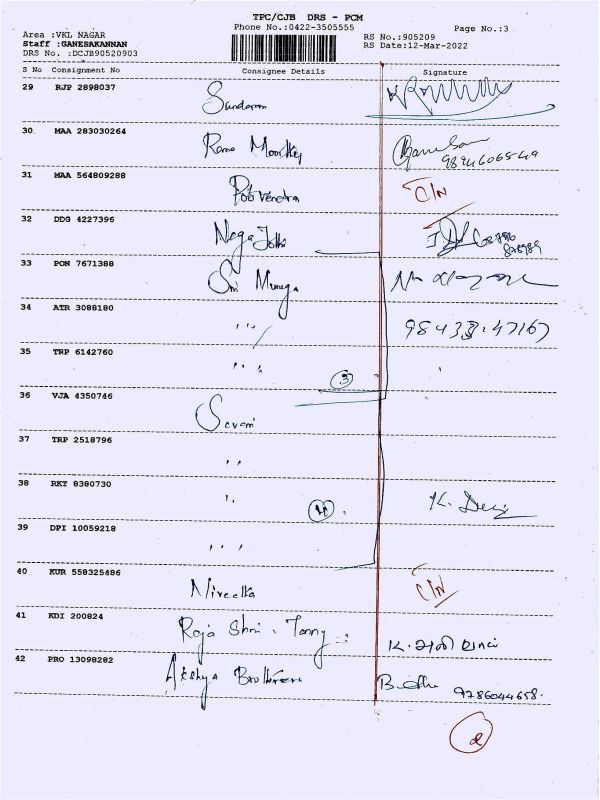 TPC/CJB DRS - PCM
Phone No.:0422-3505555
Page No.:3
Area :VKL NAGAR
Staff :GANESAKANNAN
DRS No. :DCJB90520903
RS No.:905209
RS Date:12-Mar-2022
S No Consignment No Consignee Details Signature
29 RJP 2898037 Sundaram
30 MAA 283030264 Rama Moorthy
31 MAA 564809288 C/N
32 DDG 4227396 Naga Jothi
33 PON 7671388 Sri Muruga
34 ATR 3088180 " 98433.47167
35 TRP 6142760 " 3
36 VJA 4350746
37 TRP 2518796 "
38 RKT 8380730 " 4 K. Devi
39 DPI 10059218 "
40 KUR 558325486 Nivedha C/N
41 KDI 200824 Raja Shri
42 PRO 13098282 9786044658
2